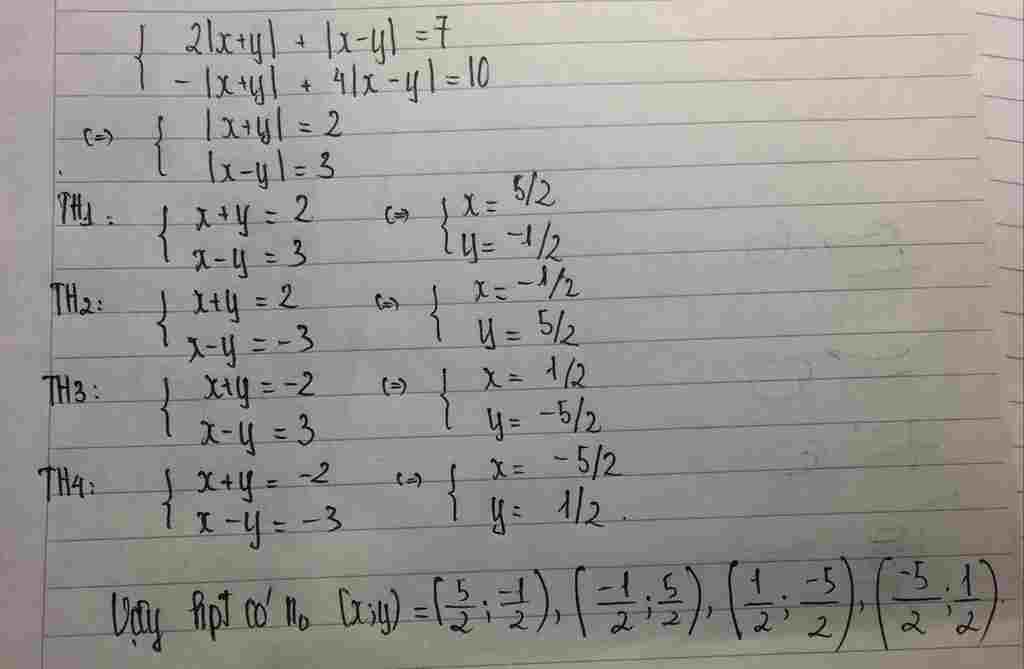 { 2|x+y| + |x-y| = 7
- |x+y| + 4|x-y| = 10
(=) { |x+y| = 2
|x-y| = 3
TH1: { x+y = 2 (=) { x = 5/2
x-y = 3 y = -1/2
TH2: { x+y = 2 (=) { x = -1/2
x-y = -3 y = 5/2
TH3: { x+y = -2 (=) { x = 1/2
x-y = 3 y = -5/2
TH4: { x+y = -2 (=) { x = -5/2
x-y = -3 y = 1/2.
Vậy hpt có no (x;y) = (5/2; -1/2), (-1/2; 5/2), (1/2; -5/2), (-5/2; 1/2).